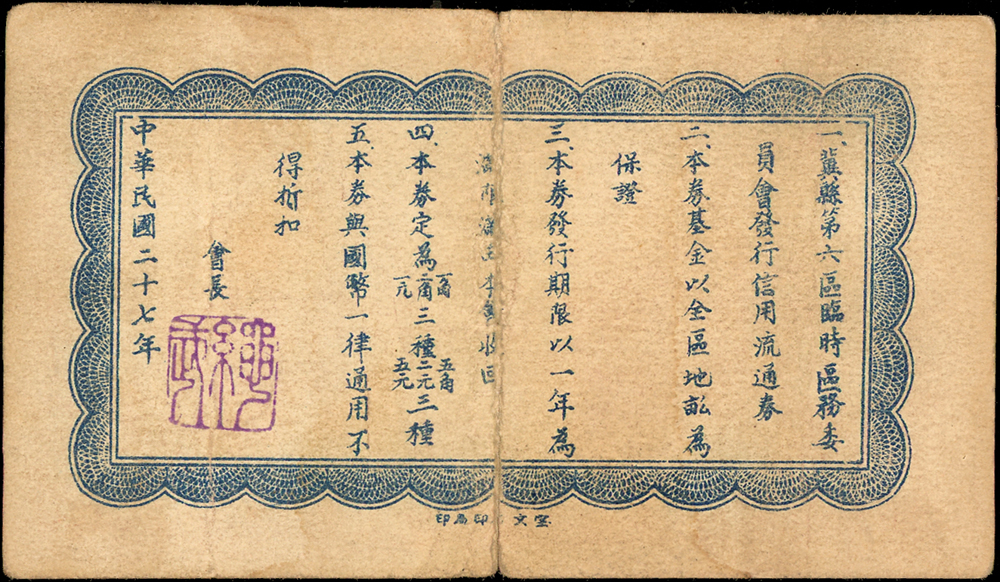 一、冀縣第六區臨時區務委
員會發行信用流通券
二、本券基金以全區地畝為
保證
三、本券發行期限以一年為
限滿 收回
四、本券定為一角二角一元三種五角二元五元三種
五、本券與國幣一律通用不
得折扣
會長
中華民國二十七年
文 印 印